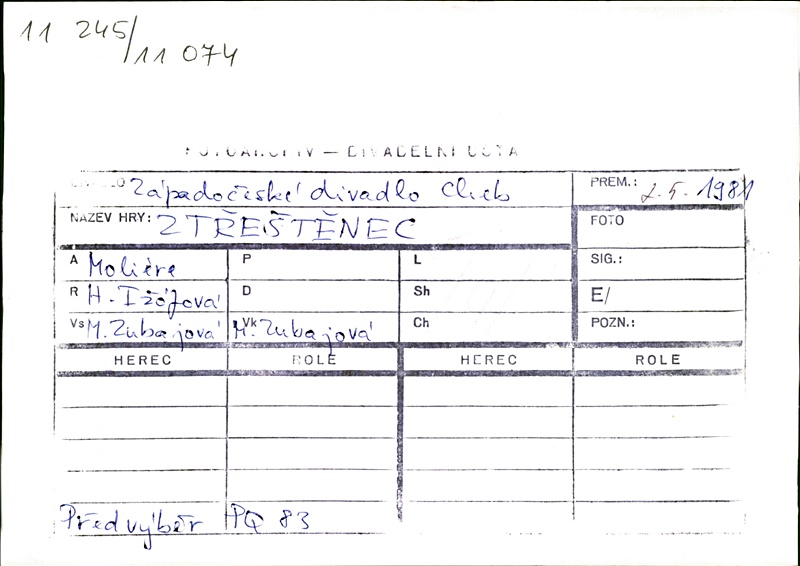 11 245/11 074
FOTOARCHIV — DIVADELNÍ ÚSTAV
DIVADLO Západočeské divadlo Cheb
PREM.: 2.5. 1981
NÁZEV HRY: ZTŘEŠTĚNEC
FOTO
A Molière P L SIG.:
R H. Ižófová D Sh E/
Vs M. Zubajová Vk M. Zubajová Ch POZN.:
HEREC ROLE HEREC ROLE
Předvýběr PQ 83